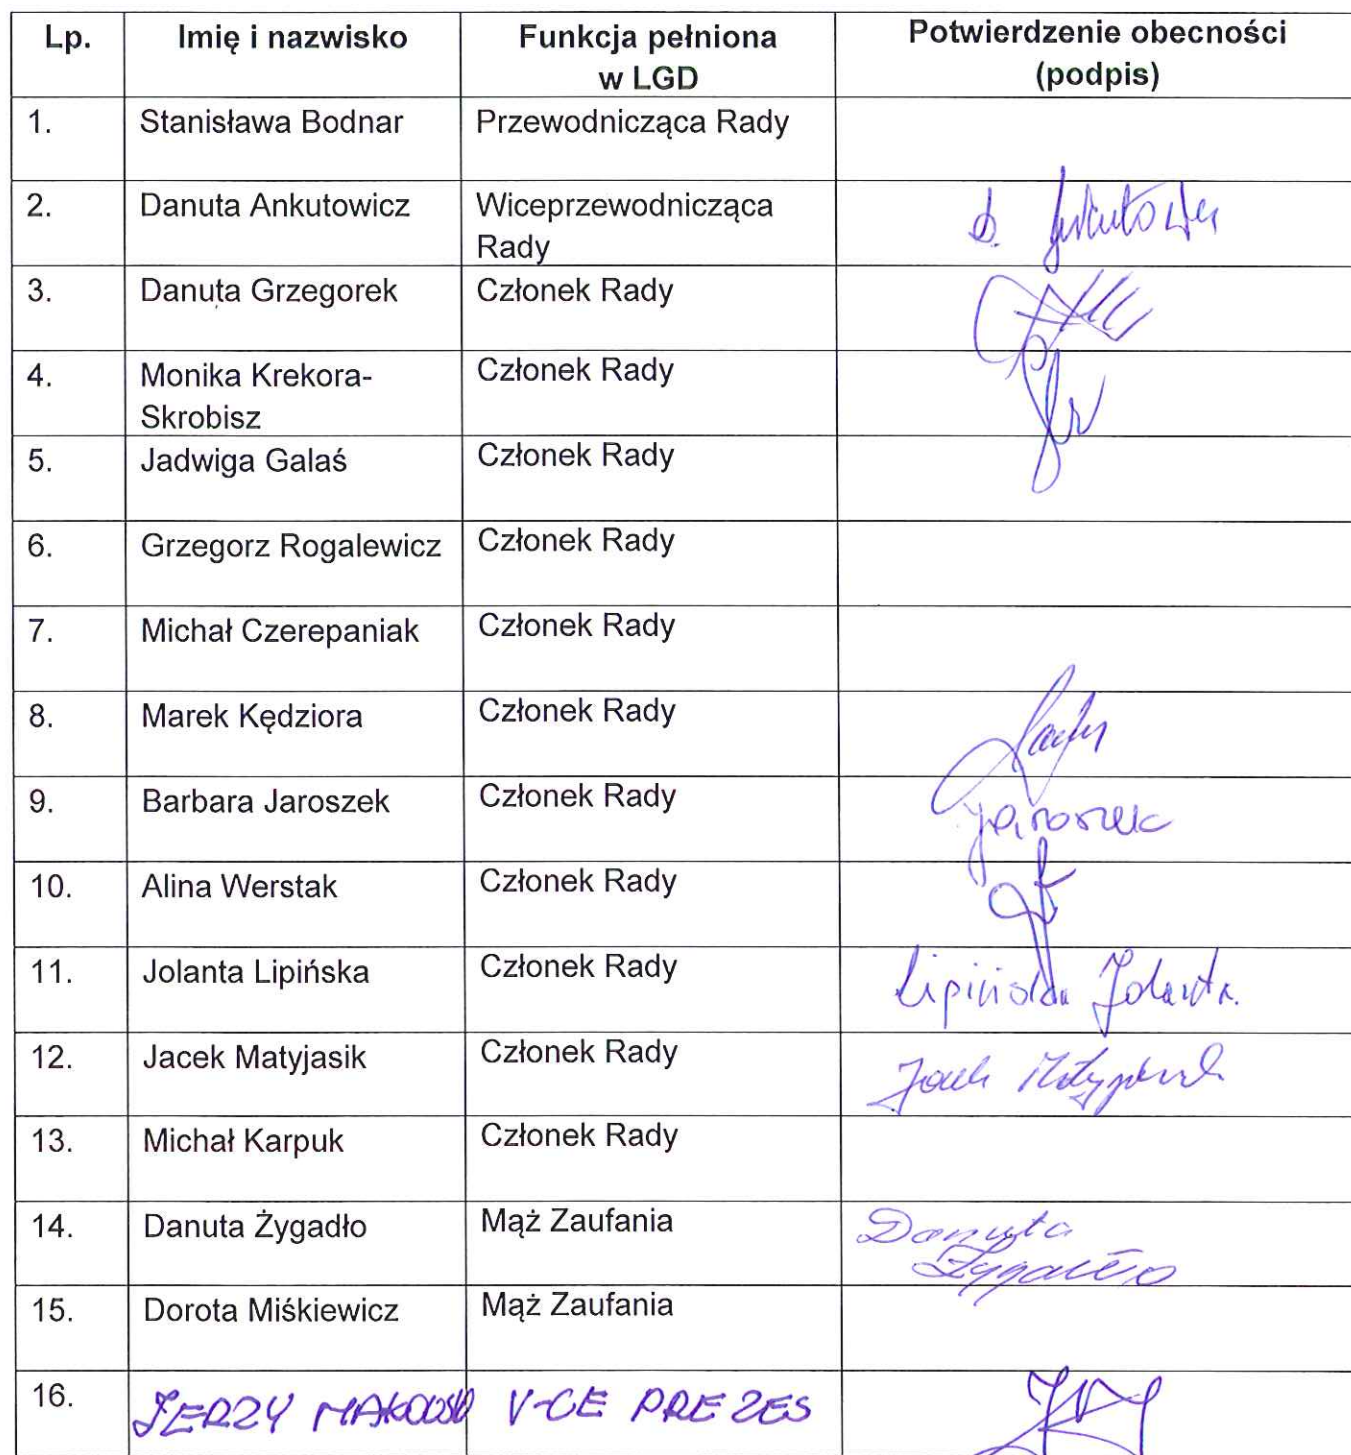 Lp. Imię i nazwisko Funkcja pełniona w LGD Potwierdzenie obecności (podpis)
1. Stanisława Bodnar Przewodnicząca Rady
2. Danuta Ankutowicz Wiceprzewodnicząca Rady
3. Danuta Grzegorek Członek Rady
4. Monika Krekora-Skrobisz Członek Rady
5. Jadwiga Galaś Członek Rady
6. Grzegorz Rogalewicz Członek Rady
7. Michał Czerepaniak Członek Rady
8. Marek Kędziora Członek Rady
9. Barbara Jaroszek Członek Rady Jaroszek
10. Alina Werstak Członek Rady
11. Jolanta Lipińska Członek Rady Lipińska Jolanta
12. Jacek Matyjasik Członek Rady Jacek Matyjasik
13. Michał Karpuk Członek Rady
14. Danuta Żygadło Mąż Zaufania Danuta Żygadło
15. Dorota Miśkiewicz Mąż Zaufania
16. JERZY MAKOWSKI V-CE PREZES